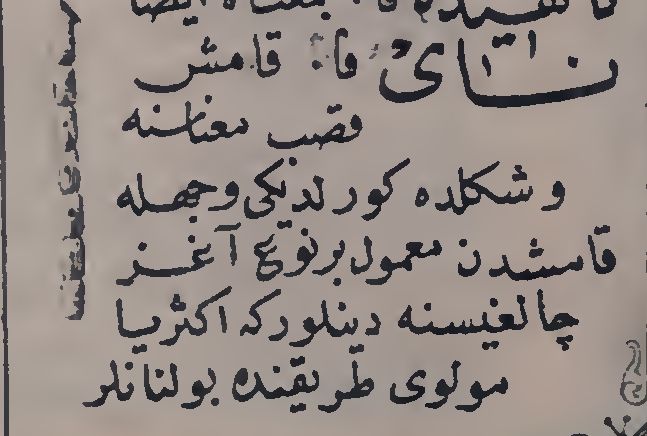 نای فا: قامش
قصب معناسنه
و شكلده كورلديكی وجهله
قامشدن معمول بر نوع آغز
چالغيسنه دينلوركه اكثريا
مولوی طريقنده بولنانلر